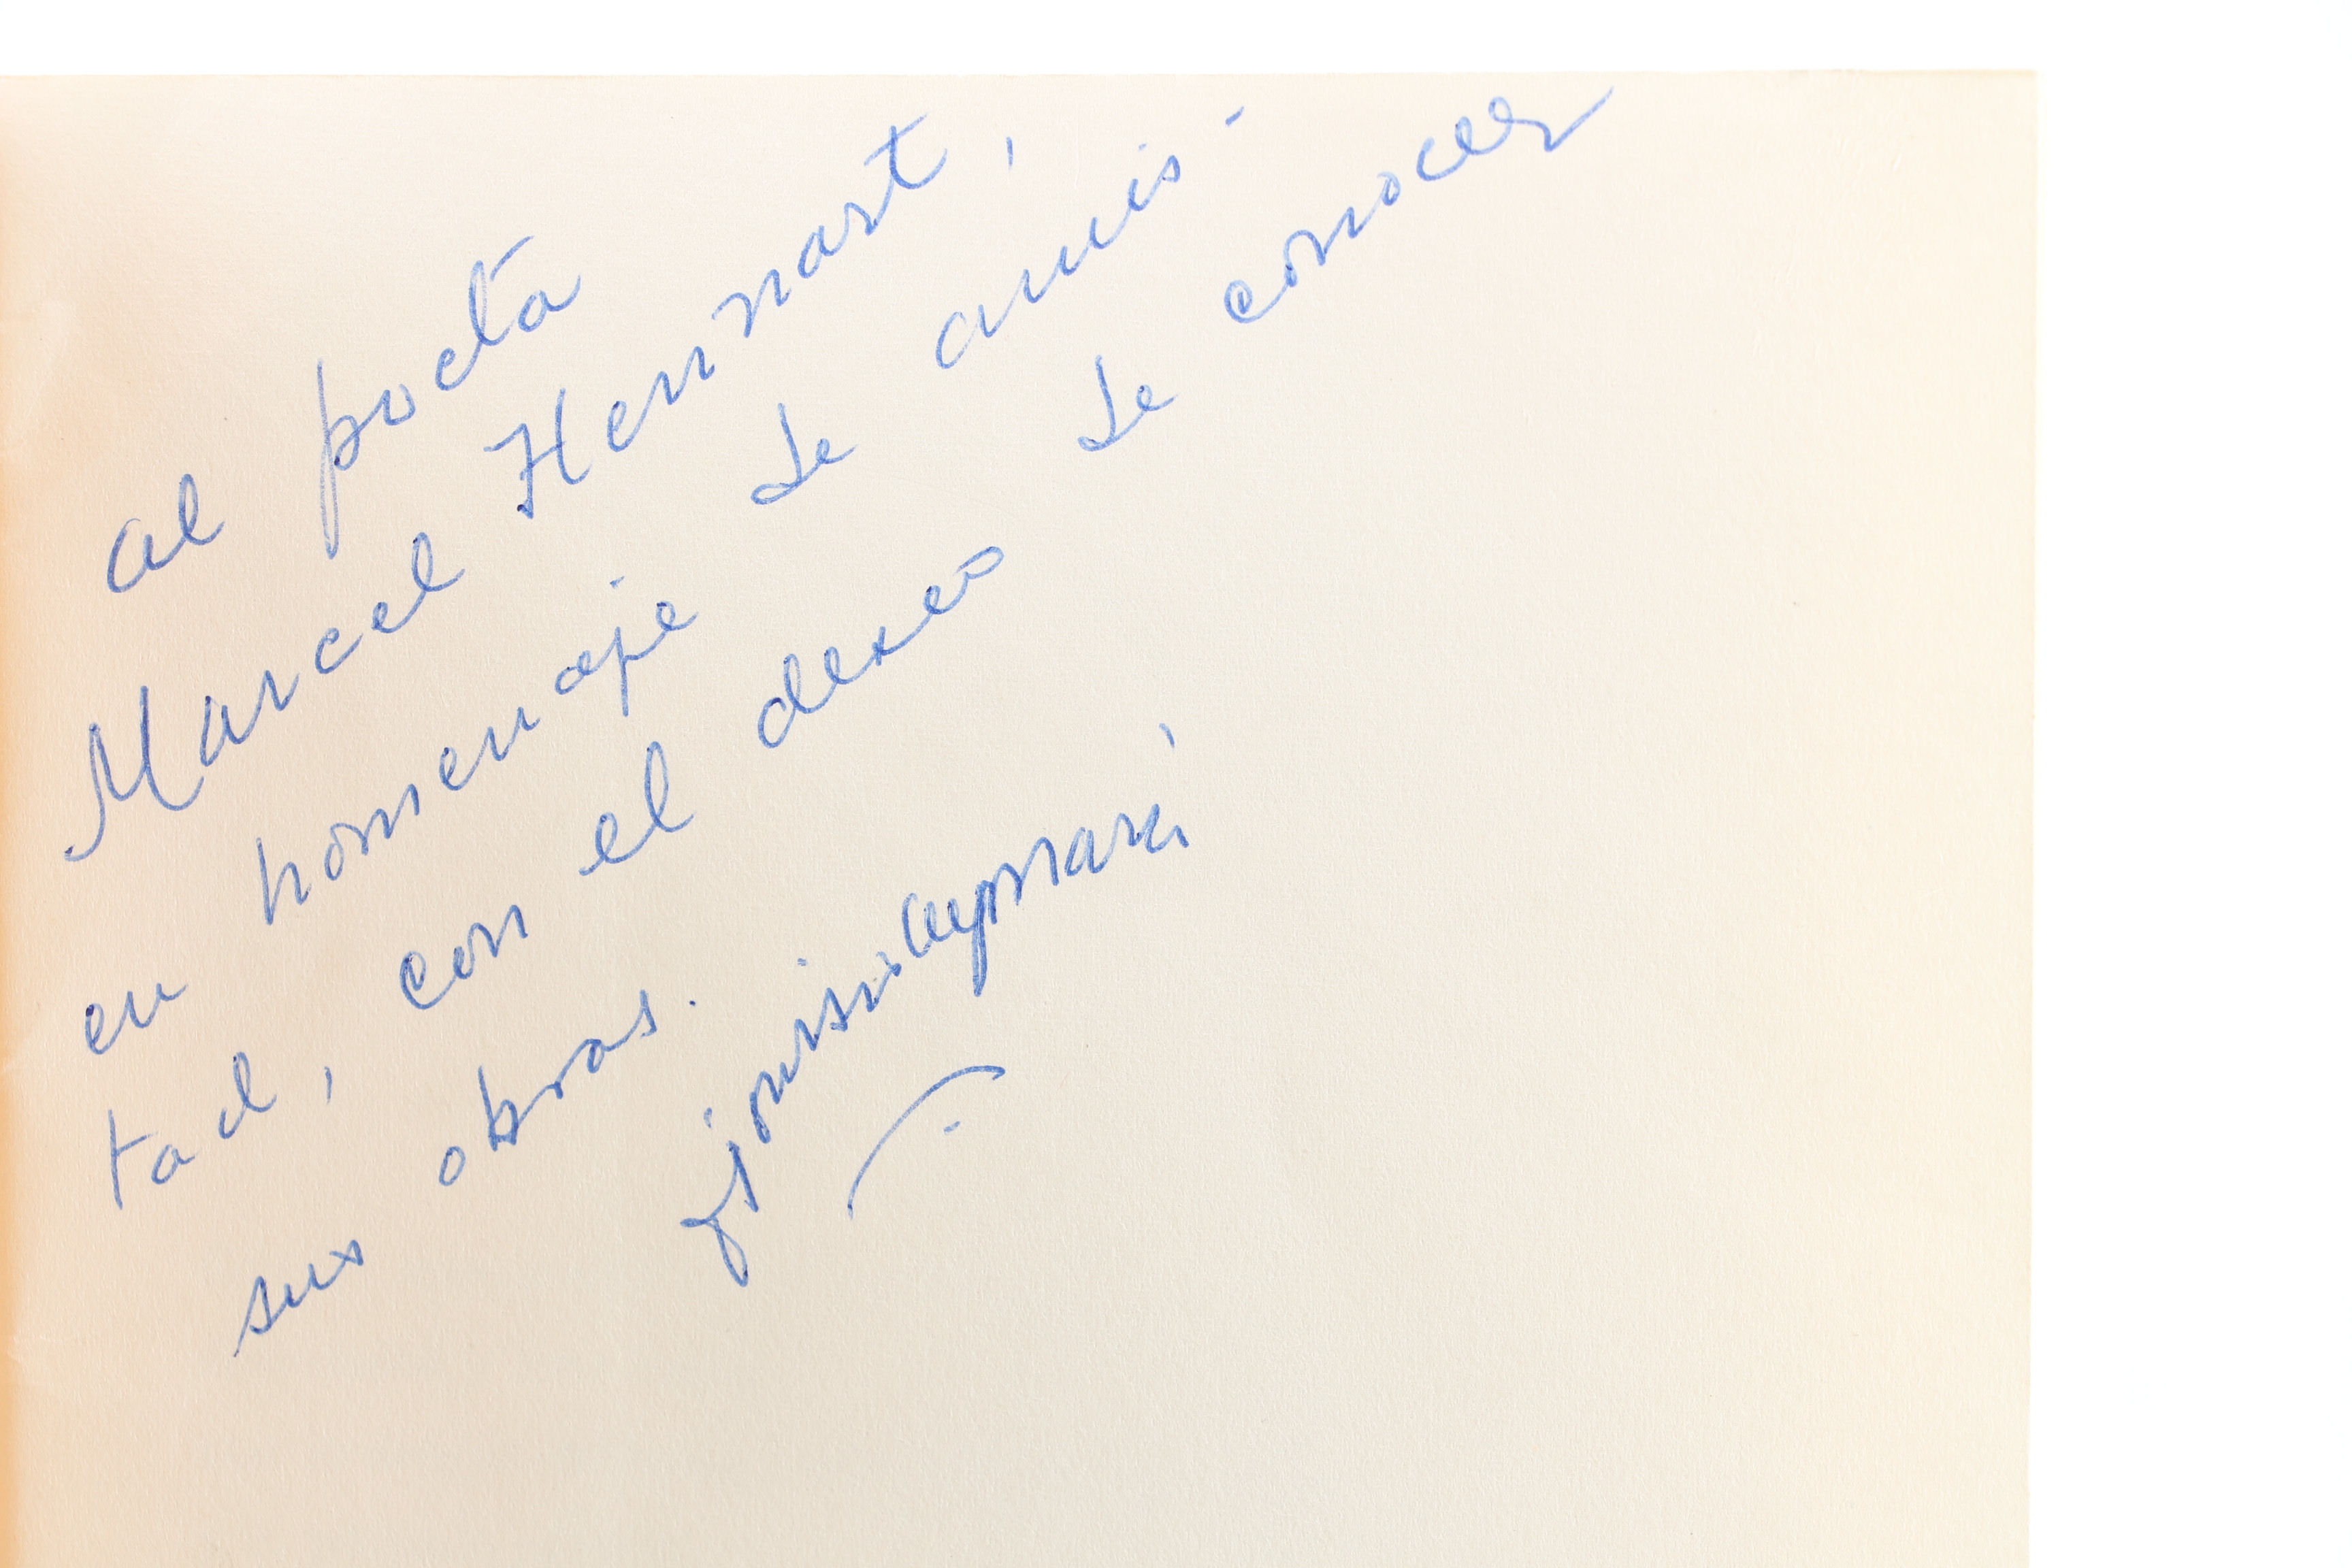 al poeta
Marcel Hennart,
en homenaje de amis-
tad, con el deseo de conocer
sus obras.